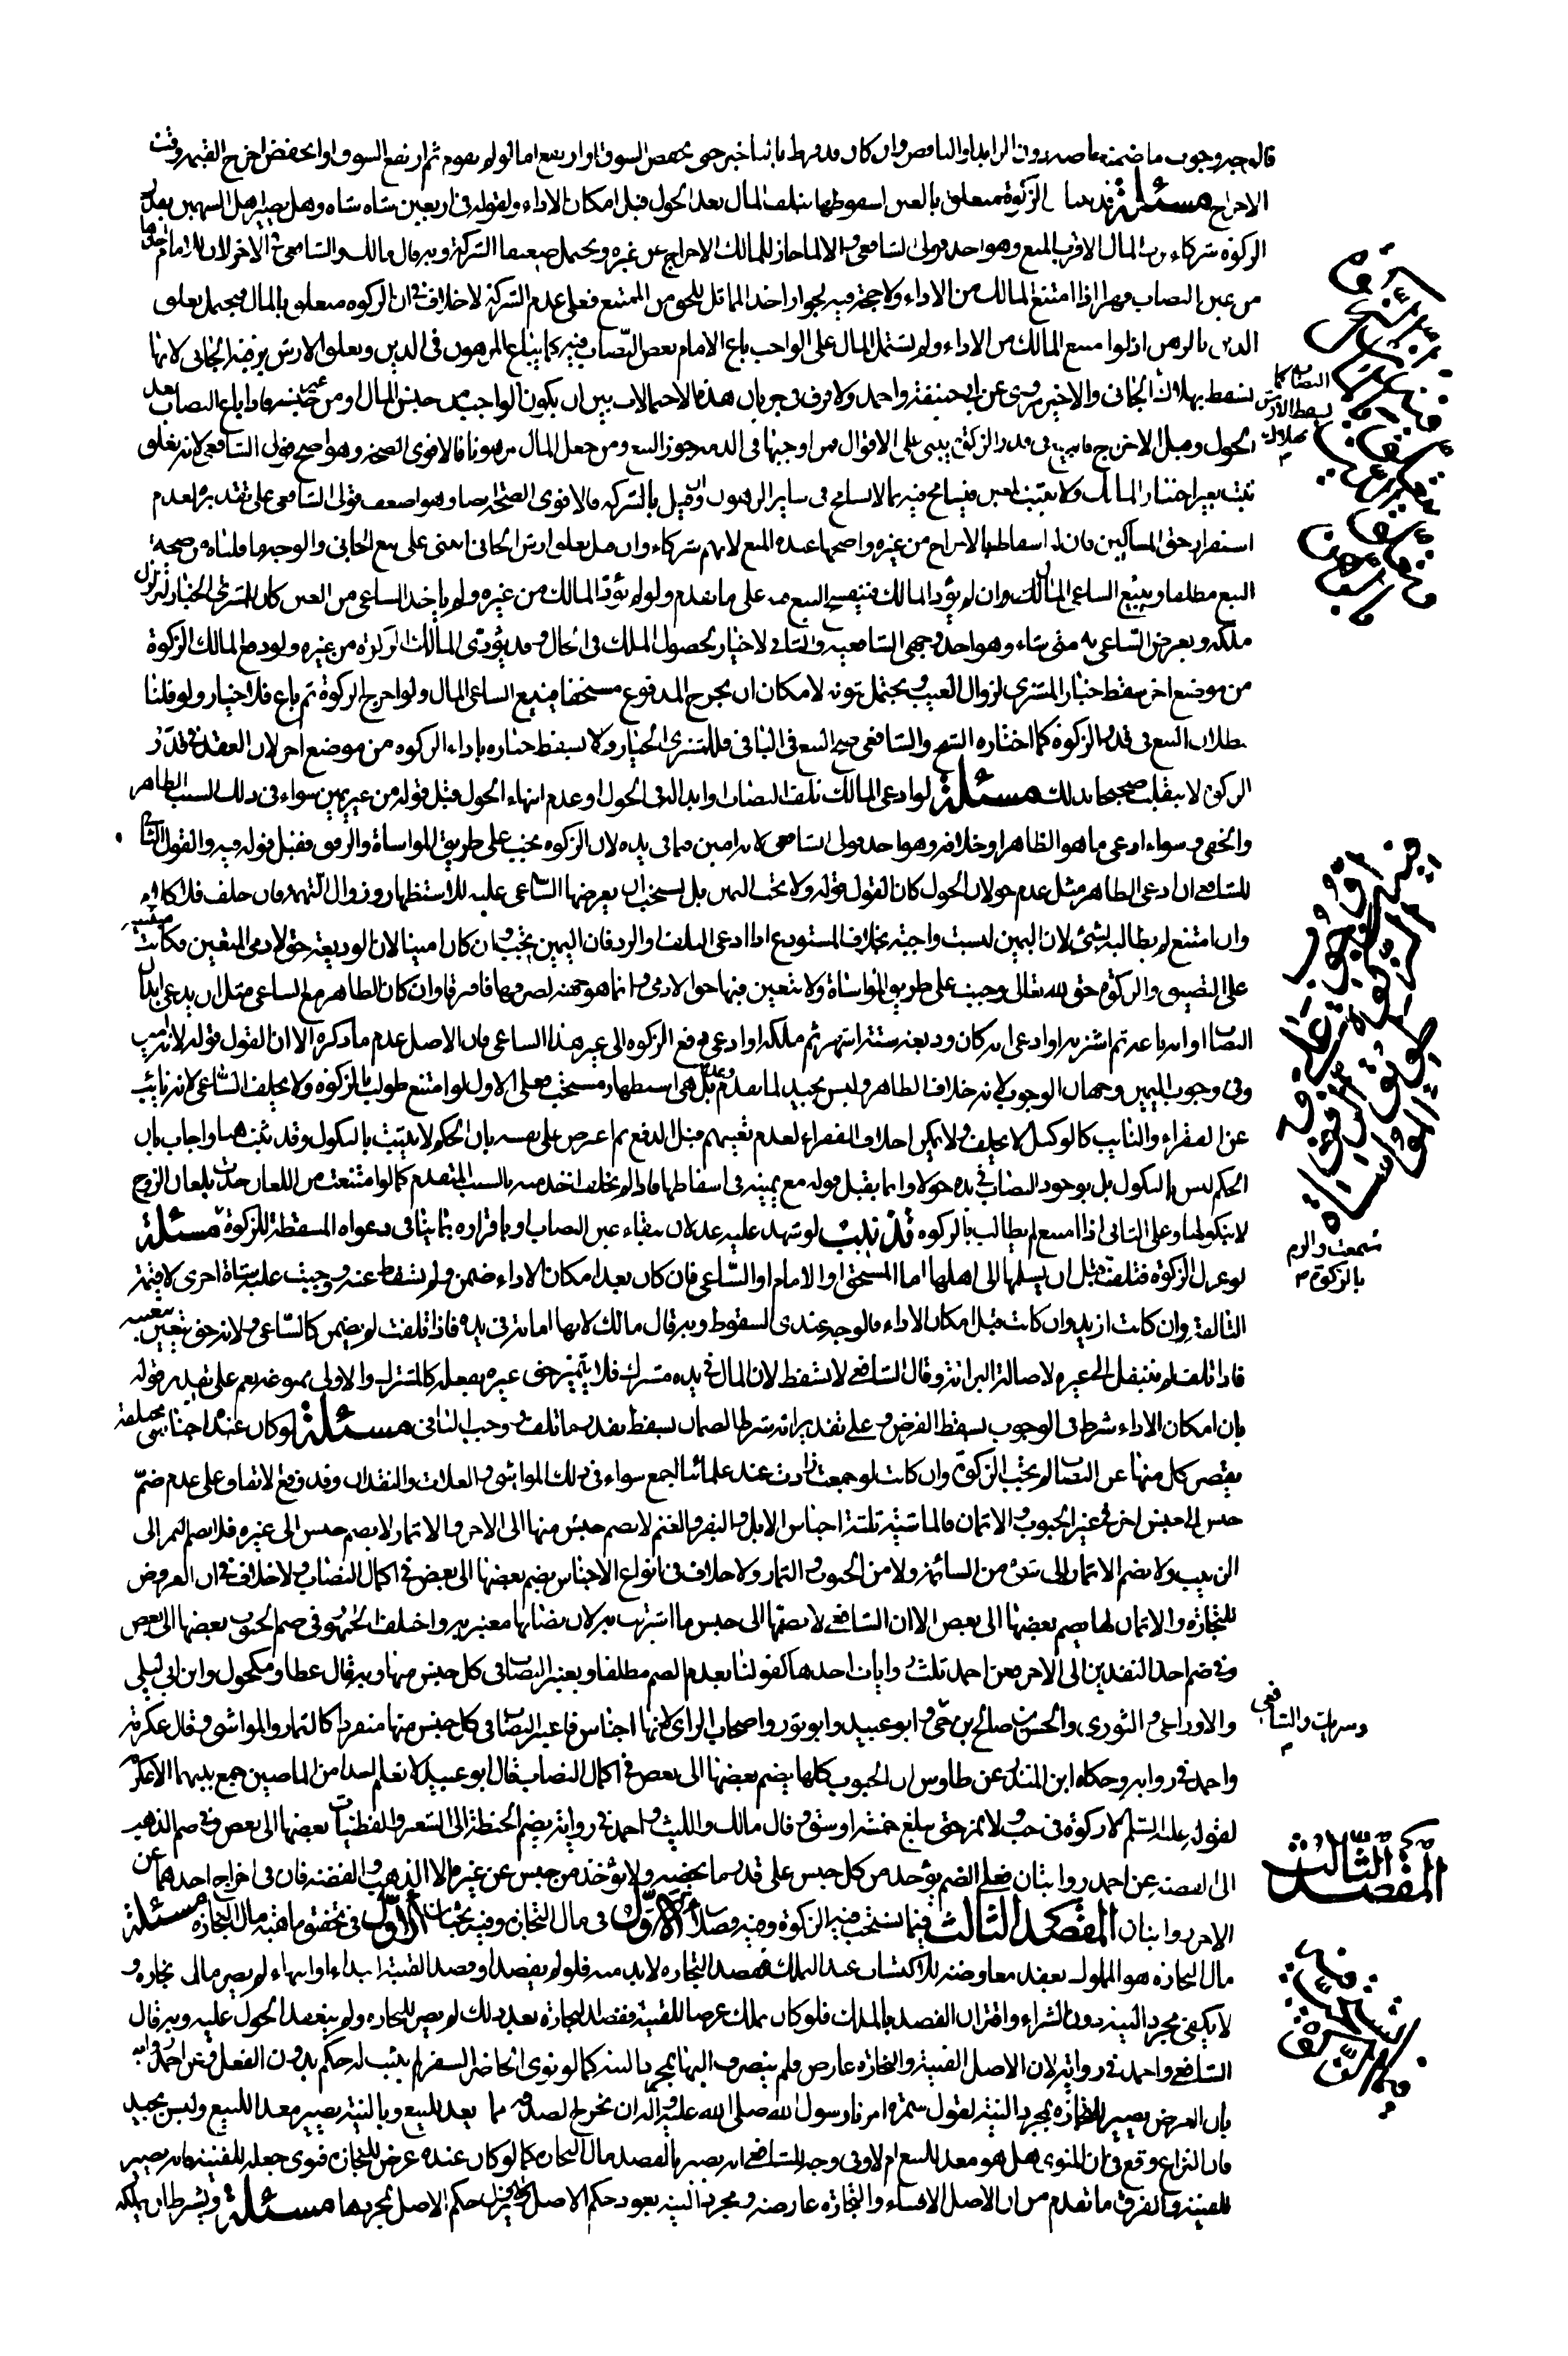 فالوجه وجوب ما ضمنه خاصة دون الزايد او الناقص وان كان قد فرط بالتأخير حتى نقص السوق او ارتفع اما لو لم يقوم ثم ارتفع السوق او انخفض اخرج القيمة وقت
الاخراج مسئلة قد بينا ان الزكوة متعلقة بالعين لسقوطها بتلف المال بعد الحول قبل امكان الاداء ولقوله في اربعين شاة شاة وهل يصير اهل السهمين بقدر
الزكوة شركاء رب المال الاقرب المنع وهو احد قولي الشافعي والا لما جاز للمالك الاخراج من غيره ويحتمل ضعيفا الشركة وبه قال مالك والشافعي في الاخر لان للامام اخذها
من عين النصاب قهرا اذا امتنع المالك من الاداء ولا حجة فيه لجواز اخذ المماثل للحق من الممتنع فعلى عدم الشركة لا خلاف في ان الزكوة متعلقة بالمال فيحتمل تعلق
الدين بالرهن اذ لو امتنع المالك من الاداء ولم يشتمل المال على الواجب باع الامام بعض النصاب فيه كما يباع المرهون في الدين وتعلق الارش برقبة الجاني لانها
تسقط بهلاك الجاني والاخير مروي عن ابي حنيفة واحمد ولا فرق في جريان هذه الاحتمالات بين ان يكون الواجب من جنس المال او من غير جنسه فاذا باع النصاب بعد
الحول وقبل الاخراج فالبيع في قدر الزكوة يبنى على الاقوال فمن اوجبها في الذمة جوز البيع ومن جعل المال مرهونا فالاقوى الصحة وهو اصح قولي الشافعي لانه تعلق
ثبت بغير اختيار المالك ولا يثبت لمعين فيسامح فيه بما لا يسامح في ساير الرهون وان قيل بالشركة فالاقوى الصحة ايضا وهو اضعف قولي الشافعي على تقديره لعدم
استقرار حق المساكين فان له اسقاطها بالاخراج من غيره واصحهما عنده المنع لانهم شركاء وان قيل تعلق ارش الجاني ابتنى على بيع الجاني والوجه ما قلناه من صحة
البيع مطلقا ويتبع الساعي المال ان لم يؤد المالك فينفسخ البيع فيه على ما تقدم ولو لم يؤد المالك من غيره ولم ياخذ الساعي من العين كان للمشتري الخيار لتزلزل
ملكه وتعرض الساعي له متى شاء وهو احد وجهي الشافعية والثاني لا خيار لحصول الملك في الحال وقد يؤدي المالك الزكوة من غيره ولو دفع المالك الزكوة
من موضع اخر سقط خيار المشتري لزوال العيب ويحتمل ثبوته لامكان ان يخرج المدفوع مستحقا فيتبع الساعي المال ولو اخرج الزكوة ثم باع فلا خيار ولو قلنا
ببطلان البيع في قدر الزكوة كما اختاره الشيخ والشافعي صح البيع في الباقي فللمشتري الخيار ولا يسقط خياره باداء الزكوة من موضع اخر لان العقد في قدر
الزكوة لا ينقلب صحيحا بذلك مسئلة لو ادعى المالك تلف النصاب او ابداله في الحول او عدم انتهاء الحول قبل قوله من غير يمين سواء في ذلك السبب الظاهر
والخفي وسواء ادعى ما هو الظاهر او خلافه وهو احد قولي الشافعي لانه امين فيما في يده لان الزكوة تجب على طريق المواساة والرفق فقبل قوله فيه والقول الثاني
للشافعي ان ادعى الظاهر مثل عدم حولان الحول كان القول قوله ولا تجب اليمين بل يستحب ان يعرضها الساعي عليه للاستظهار وزوال التهمة فان حلف فلا كلام
وان امتنع لم يطالبه بشئ لان اليمين ليست واجبة بخلاف المستودع اذا ادعى التلف او الرد فان اليمين تجب وان كان امينا لان الوديعة حق لادمي المتعين فكانت مبنية
على التضيق والزكوة حق لله تعالى وجبت على طريق المواساة ولا يتعين فيها حق الادمي وانما هو جهة لصرفها فافترقا وان كان الظاهر مع الساعي مثل ان يدعي ابدال
النصاب او انه باعه ثم اشتراه او ادعى انه كان وديعة ستة اشهر ثم ملكه او ادعى دفع الزكوة الى غير هذا الساعي فان الاصل عدم ما ذكره الا ان القول قوله لانه امين
وفي وجوب اليمين وجهان الوجوب لانه خلاف الظاهر وليس بجيد لما تقدم وعدمه بل هي استظهار مستحب فعلى الاول لو امتنع طولب بالزكوة ولا يحلف الساعي لانه نائب
عن الفقراء والنايب كالوكيل لا يحلف ولا يمكن احلاف الفقراء لعدم تعينهم قبل الدفع ثم اعترض على نفسه بان الحكم لا يثبت بالنكول وقد ثبت هنا واجاب بان
الحكم ليس بالنكول بل بوجود النصاب في يده حولا وانما يقبل قوله مع يمينه في اسقاطها فاذا لم يحلف اخذ منه بالسبب المتقدم كما لو امتنعت من اللعان حدت بلعان الزوج
لا بنكولها وعلى الثاني اذا امتنع لم يطالب بالزكوة تذنيب لو شهد عليه عدلان ببقاء عين النصاب او باقراره بما ينافي دعواه المسقطة للزكوة مسئلة
لو عزل الزكوة فتلفت قبل ان يسلمها الى اهلها اما المستحق او الامام او الساعي فان كان بعد امكان الاداء ضمن ولم تسقط عنه ووجبت عليه شاة اخرى لا قيمة
التالفة وان كانت ازيد وان كانت قبل امكان الاداء فالوجه عندي السقوط وبه قال مالك لانها امانة في يده فاذا تلفت لم يضمن كالساعي ولانه حق تعين بتعيينه
فاذا تلف لم ينتقل الى غيره لاصالة البراءة وقال الشافعي لا تسقط لان المال في يده مشترك فلا يتميز حق غيره بفعله كالمشترك والاولى ممنوعة نعم على تقدير قوله
بان امكان الاداء شرط في الوجوب يسقط الفرض وعلى تقدير انه شرط الضمان يسقط بقدر ما تلف ووجب الباقي مسئلة لو كان عنده اجناس مختلفة
يقصر كل منها عن النصاب لم تجب الزكوة وان كانت لو جمعت زادت عند علمائنا اجمع سواء في ذلك المواشي والغلات والنقدان وقد وقع الاتفاق على عدم ضم
جنس الى جنس اخر في غير الحبوب والاثمان فالماشية ثلثة اجناس الابل والبقر والغنم لا يضم جنس منها الى الاخر والاثمار لا يضم جنس الى غيره فلا يضم التمر الى
الزبيب ولا يضم الاثمار الى شئ من السائمة ولا من الحبوب والثمار ولا خلاف في انواع الاجناس يضم بعضها الى بعض في اكمال النصاب ولا خلاف في ان العروض
للتجارة والاثمان لها يضم بعضها الى بعض الا ان الشافعي لا يضمها الى جنس ما اشتريت به لان نصابها معتبر به واختلف الجمهور في ضم الحبوب بعضها الى بعض
وفي ضم احد النقدين الى الاخر فعن احمد ثلث روايات احدها كقولنا بعدم الضم مطلقا ويعتبر النصاب في كل جنس منها وبه قال عطا ومكحول وابن ابي ليلى
والاوزاعي والثوري والحسن بن صالح بن حي وابو عبيد وابو ثور واصحاب الراي لانها اجناس فاعتبر النصاب في كل جنس منها منفردا كالثمار والمواشي وقال عكرمة
واحمد في رواية وحكاه ابن المنذر عن طاوس ان الحبوب كلها يضم بعضها الى بعض في اكمال النصاب قال ابو عبيد لا نعلم احدا من الماضين جمع بينهما الا عكرمة
لقوله عليه السلم لا زكوة في حب ولا تمر حتى يبلغ خمسة اوسق وقال مالك والليث واحمد في رواية يضم الحنطة الى الشعير والقطنيات بعضها الى بعض وفي ضم الذهب
الى الفضة عن احمد روايتان فعلى الضم يؤخذ من كل جنس على قدر ما يخصه ولا يؤخذ من جنس عن غيره الا الذهب والفضة فان في اخراج احدهما عن
الاخر روايتان المقصد الثالث فيما يستحب فيه الزكوة وفيه فصلان الاول في مال التجارة وفيه بحثان الاول في تحقق ماهية مال التجارة مسئلة
مال التجارة هو المملوك بعقد معاوضة للاكتساب عند التملك فقصد التجارة لا بد منه فلو لم يقصد او قصد القنية ابتداء او انتهاء لم يصر مال تجارة و
لا يكفي مجرد النية دون الشراء واقتران القصد بالملك فلو كان يملك عرضا للقنية فقصد التجارة بعد ذلك لم يصر للتجارة ولم ينعقد الحول عليه وبه قال
الشافعي واحمد في رواية لان الاصل القنية والتجارة عارض فلم ينصرف اليها بمجرد النية كما لو نوى الحاضر السفر لم يثبت له حكم بدون الفعل وعن احمد رواية
بان العرض يصير للتجارة بمجرد النية لقول سمرة امرنا رسول الله صلى الله عليه واله ان نخرج الصدقة مما يعد للبيع وبالنية يصير معدا للبيع وليس بجيد
فان النزاع وقع في ان المنوي هل هو معد للبيع ام لا وفي وجه للشافعي انه يصير بالقصد مال التجارة كما لو كان عنده عرض للتجارة فنوى جعله للقنية فانه يصير
للقنية والفرق ما تقدم من ان الاصل الاقتناء والتجارة عارضة وبمجرد النية يعود حكم الاصل ولا يزول حكم الاصل بمجردها مسئلة ويشترط ان يملكه
النصاب كما
يسقط الارش
بهلاك
سمعت والزم
بالزكوة
وشريك والشافعي
المقصد الثالث